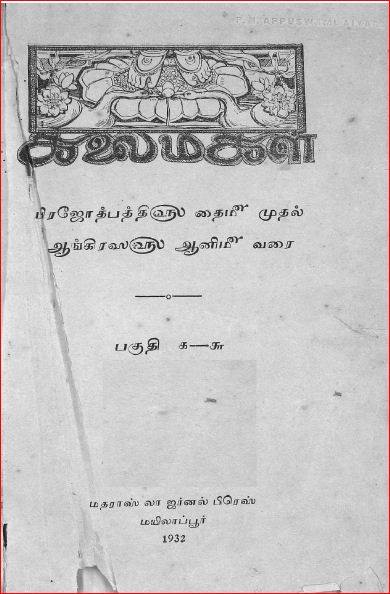 P. N. APPUSWAMI AIYAR
கலைமகள்
பிரஜோத்பத்தி௵ தை௴ முதல்
ஆங்கிரஸ௵ ஆனி௴ வரை
பகுதி ௧—௬
மதராஸ் லா ஜர்னல் பிரெஸ்
மயிலாப்பூர்
1932